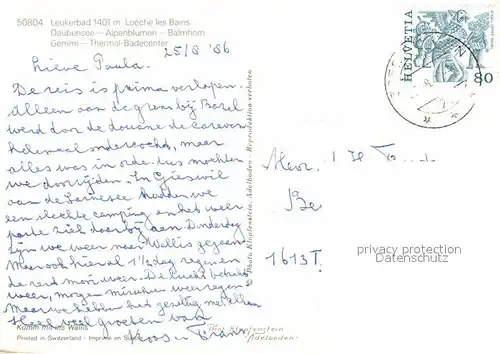 50804 Leukerbad 1401 m. Loèche les Bains
Daubensee — Alpenblumen — Balmhorn
Gemmi — Thermal-Badecenter
25/8 '86
Lieve Paula.
De reis is prima verlopen.
Alleen aan de grens bij Basel
werd door de douane de caravan
helemaal onderzocht, maar
alles was in orde dus mochten
we doorrijden. In Giswil
aan de Sarnersee hadden we
een slechte camping en het weer
zat daarbij aan Donderdag
zijn we weer naar Wallis gegaan
Maar ook hier al 1½ dag regen en
de rest mooi weer. De lucht betrekt
weer, mogen
Maar we hebben het gezellig met allen
Heel veel groeten van
Koos en Frans
Komm mit ins Wallis
Printed in Switzerland - Imprimé en Suisse
© Photo Klopfenstein - Adelboden - Reproduktion verboten
Photo Klopfenstein
Adelboden
HELVETIA
80
1613 T.
privacy protection
Datenschutz